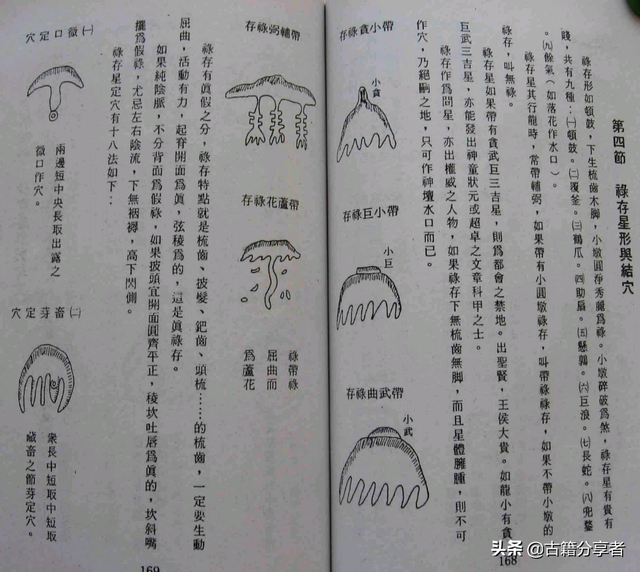 第四節　祿存星形與結穴
祿存形如頓鼓，下生梳齒木脚，小墩圓淨秀麗爲祿。小墩碎破爲煞，祿存星有貴有
賤，共有九種：㈠頓鼓。㈡覆釜。㈢鶴爪。㈣助扇。㈤懸鶉。㈥巨浪。㈦長蛇。㈧兜鍪
。㈨餘氣（如落花作水口）。
祿存星其行龍時，常帶輔弼，如果帶有小圓墩祿存，叫帶祿祿存，如果不帶小墩的
祿存，叫無祿。
祿存星如果帶有貪武巨三吉星，則爲都會之禁地。出聖賢，王侯大貴。如龍小有貪
巨武三吉星，亦能發出神童狀元或超卓之文章科甲之士。
祿存作爲問星，亦出權威之人物，如果祿存下無梳齒無脚，而且星體臃腫，則不可
作穴，乃絕嗣之地，只可作神壇水口而已。
存祿貪小帶
小貪
存祿巨小帶
小巨
存祿曲武帶
小武
168
存祿弼輔帶
存祿花蘆帶
祿帶祿
屈曲而
爲蘆花
祿存有眞假之分，祿存特點就是梳齒、披髮、鈀齒、頭梳……的梳齒，一定要生動
屈曲，活動有力，起脊開面爲眞，弦稜爲的，這是眞祿存。
如果純陰脈，不分背面爲假祿，如果披頭宜開面圓齊平正，稜坎吐唇爲眞的，坎斜嘴
擺爲假祿，尤忌左右陰流，下無裀褥，高下閃側。
祿存星定穴有十八法如下：
㈠徵口定穴
兩邊短中央長取出露之
徵口作穴。
㈡畜芽定穴
衆長中短取中短取
藏畜之節芽定穴。
169
头条 @古籍分享者